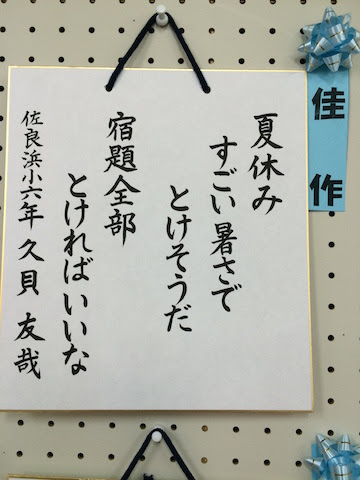 佳作
夏休み
すごい暑さで
とけそうだ
宿題全部
とければいいな
佐良浜小六年 久貝 友哉